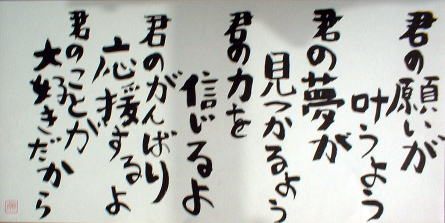 君の願いが
叶うよう
君の夢が
見つかるよう
君の力を
信じるよ
君のがんばり
応援するよ
君のことが
大好きだから